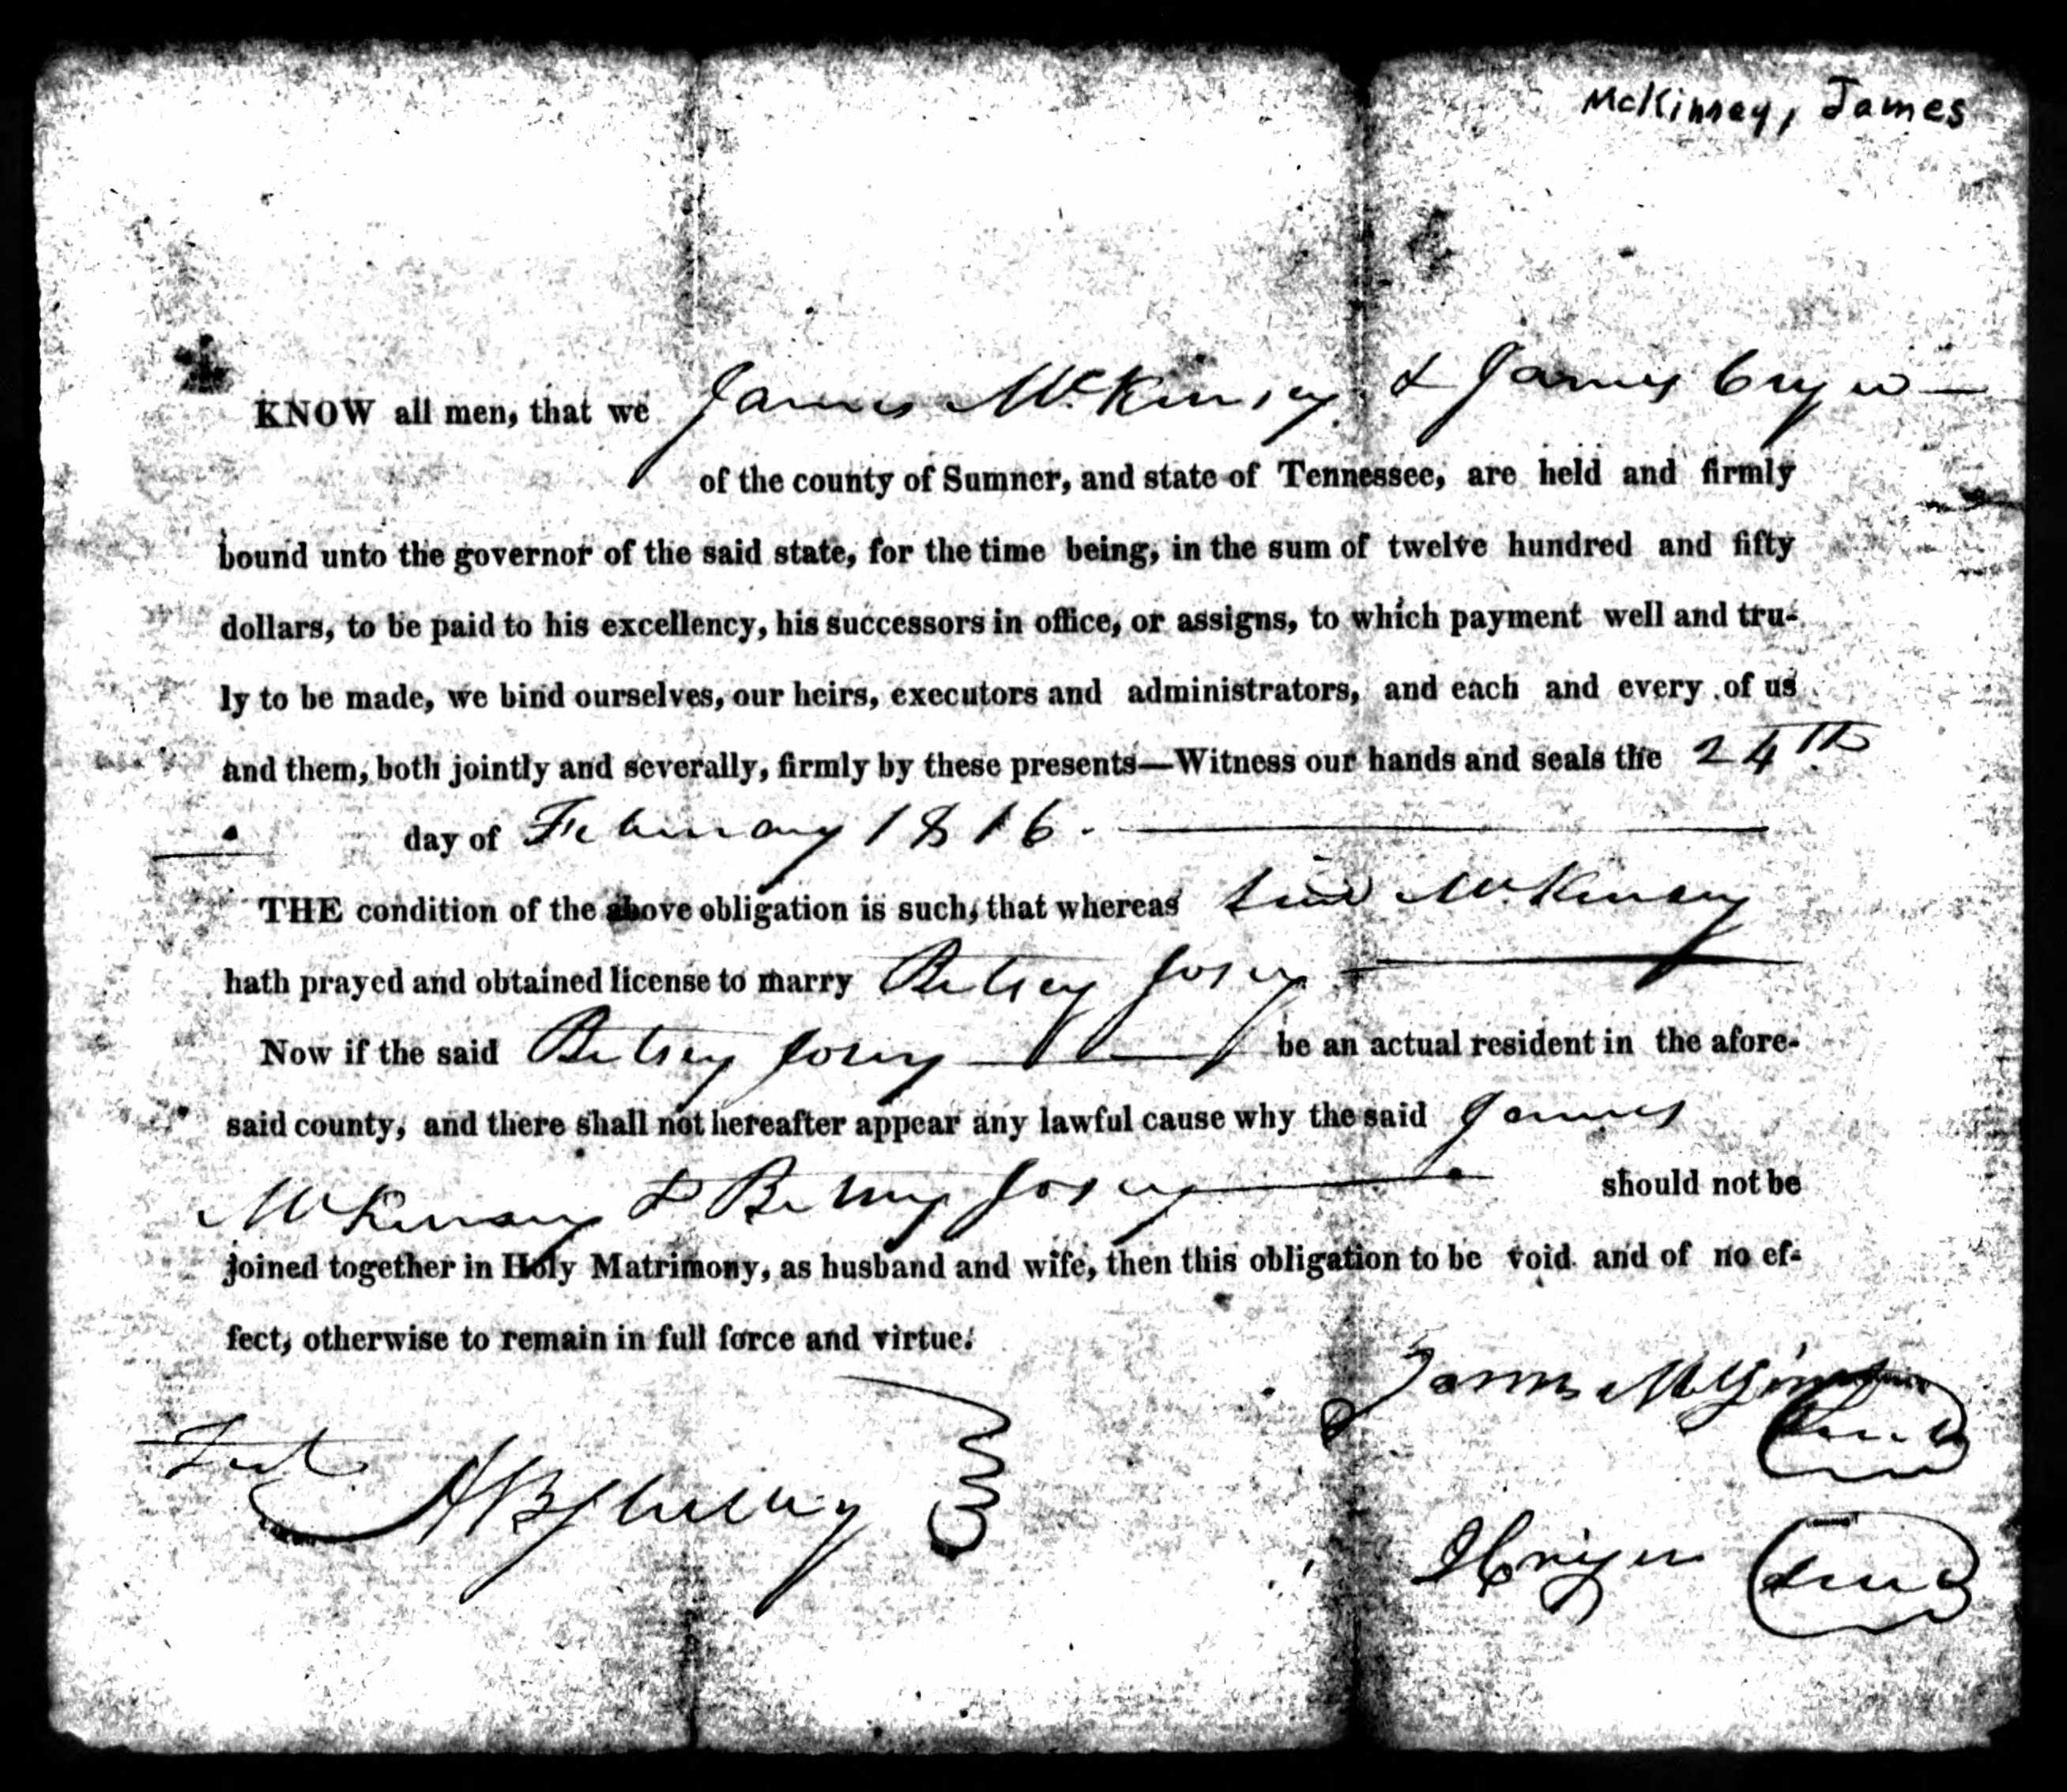 McKinsey, James
KNOW all men, that we James McKinsey & James Cryer
of the county of Sumner, and state of Tennessee, are held and firmly
bound unto the governor of the said state, for the time being, in the sum of twelve hundred and fifty
dollars, to be paid to his excellency, his successors in office, or assigns, to which payment well and tru-
ly to be made, we bind ourselves, our heirs, executors and administrators, and each and every of us
and them, both jointly and severally, firmly by these presents—Witness our hands and seals the 24th
day of February 1816.
THE condition of the above obligation is such, that whereas said McKinsey
hath prayed and obtained license to marry Betsey Josey
Now if the said Betsey Josey be an actual resident in the afore-
said county, and there shall not hereafter appear any lawful cause why the said James
McKinsey & Betsey Josey should not be
joined together in Holy Matrimony, as husband and wife, then this obligation to be void and of no ef-
fect, otherwise to remain in full force and virtue.
James
Test
ABShelby
JCryer Seal